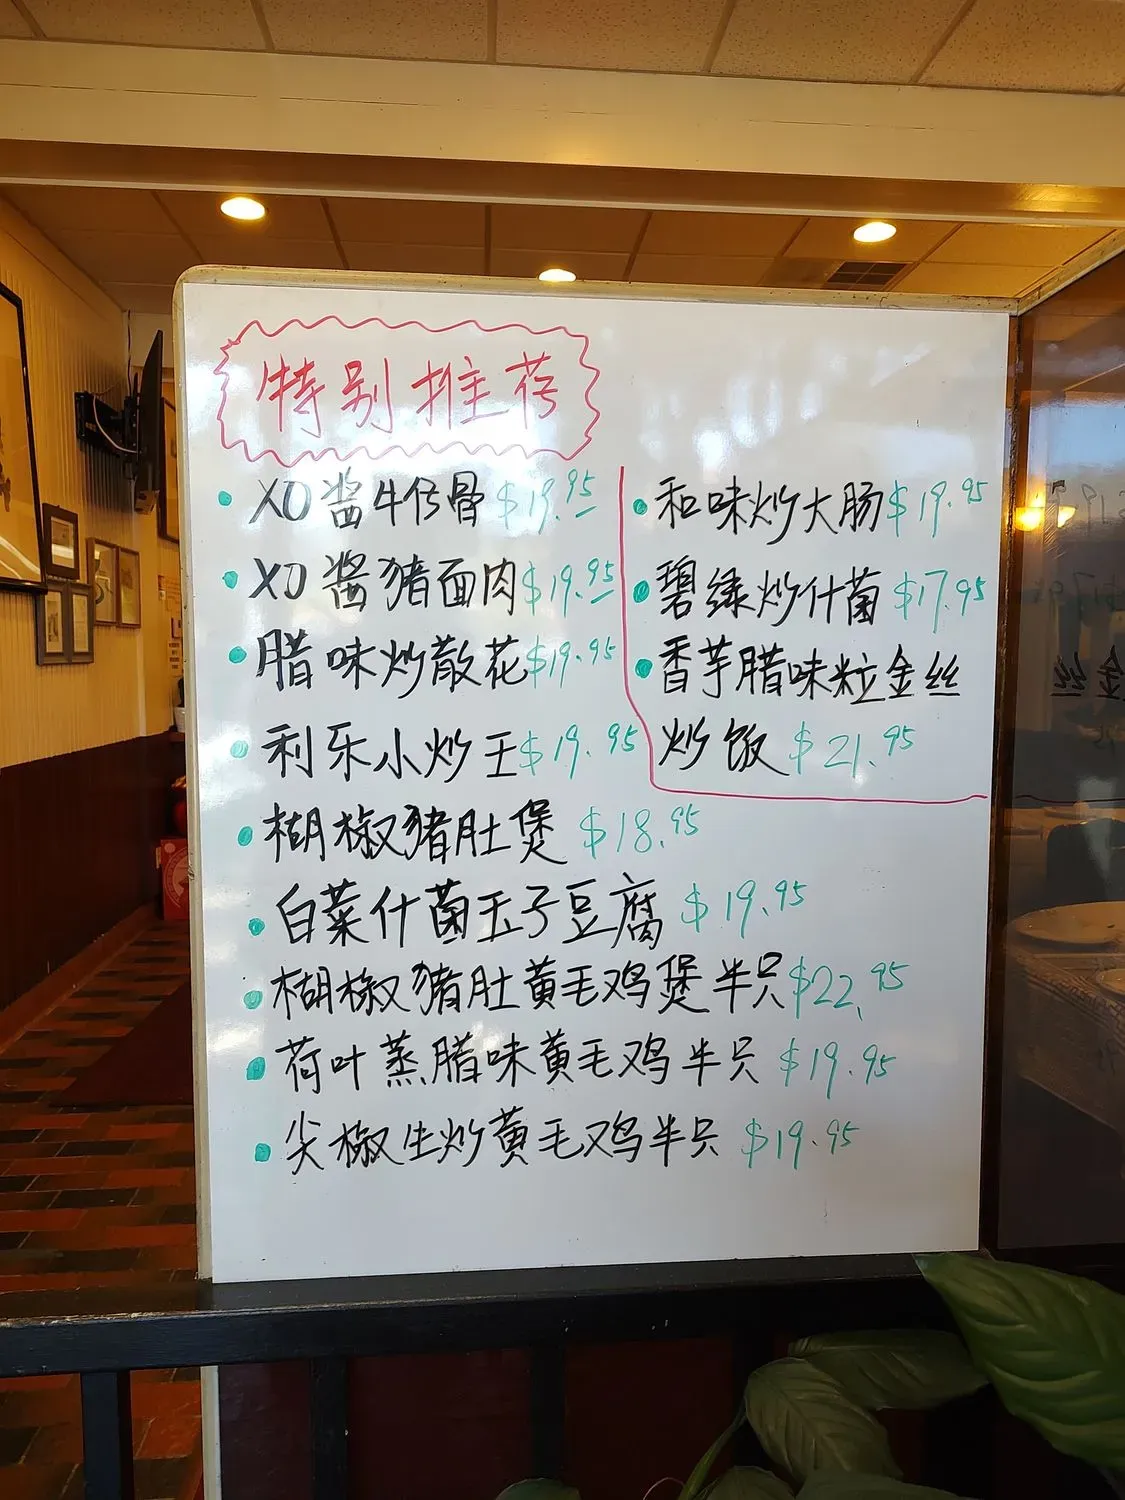 特别推荐
XO酱牛仔骨 $19.95
XO酱猪面肉 $19.95
腊味炒散花 $19.95
利乐小炒王 $19.95
胡椒猪肚煲 $18.95
白菜什菌玉子豆腐 $19.95
胡椒猪肚黄毛鸡煲半只 $22.95
荷叶蒸腊味黄毛鸡半只 $19.95
尖椒生炒黄毛鸡半只 $19.95
和味炒大肠 $19.95
碧绿炒什菌 $17.95
香芋腊味粒金丝
炒饭 $21.95